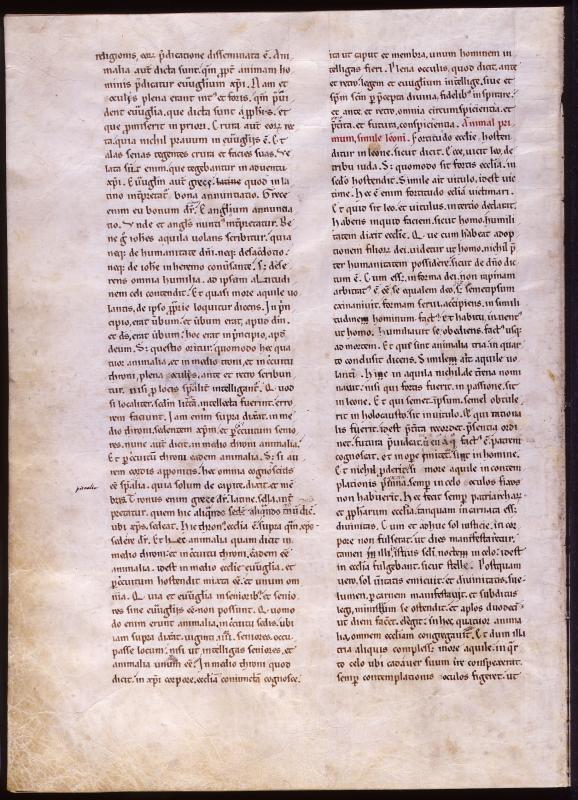 religionis, eorū p̄dicatione disseminata ē. Ani
malia aut̄ dicta sunt. qm̄ ꝓpt̄ animam ho
minis p̄dicatur euu̅glium xp̄i. Nam et
oculis plena erant int᷒ et foris. qm̄ p̄ui
dent euu̅glia, que dicta sunt a ꝓph̄is. et
que ꝓmiserit in priori. Crura aut̄ eorū rec
ta. quia nichil prauum in euu̅glijs ē. Et
alas senas tegentes crura et facies suas. Ve
lata sūt enim, que tegebantur in aduentū
xp̄i. Euu̅glm̄ aut̄ grece, quod in la
tino int̄pretat᷑ bona annuntiatio. Grece
enim eu bonum dr̄. angelium annuncia
tio. Vnde et angl̄s nunti᷒ int̄pretatur. Be
ne g̊ ioh̄es aquila uolans scribitur. quia
neq; de humanitate dn̄i. neq; de
neq; de ioh̄e in heremo
rens omnia humilia. ad ipsam altitudi
nem celi contendit. Et quasi more aquile uo
lantis, de ipso ꝓprie loquitur dicens. In p̄n
cipio, erat uerbum. et uerbum erat, apud dm̄.
et ds̄, erat uerbum. hoc erat in p̄ncipio, apd̄
deum. Si questio oritur. quomodo hec qua
tuor animalia, et in medio troni, et in circuitu
throni, plena oculis, ante et retro scribun
tur. nisi ꝓ locis sp̄alit̄ intelligant᷑. Quod
si localiter, secdm̄ litt̄a, intellecta fuerint. erro
rem faciunt. Iam enim supra dixit. in me
dio throni sedentem xp̄m. et p̄ circuitum senio
res. nunc aut̄ dicit. in medio throni animalia.
Et p̄ circuitū throni eadem animalia. Si au
rem cordis apponitis. hec omnia cognoscetis
eē sp̄alia. quia solum de capite dicit. et mē
bris. Tronus enim grece dr̄. latine sella. int̄
pretatur. quem hic
ubi xp̄s, sedeat. Hic thron᷒, ecclīa ē. supra quā, xp̄s
sedere dr̄. Et h̄ animalia quam dicit in
medio throni. et in circuitu throni. eadem eē
animalia. idest in medio ecclīe euu̅glia. et
p̄ circuitum hostendit mixta eē. et unum om
nia. Quia et euu̅glia in seniorib;. et senio
res sine euu̅glijs eē non possunt. Quomo
do enim erunt animalia, in circuitu sedis. ubi
iam supra dixit. uiginti iiii. seniores occu
passe locum. nisi ut intelligas seniores, et
animalia unum eē. In medio throni quod
dicit. in xp̄i corpore, ecclīā coniunctā cognosce.
ita ut caput et membra, unum hominem in
telligas fieri. Plena occulis, quod dicit, ante
et retro. legem et euu̅glium intellige. siue et
sp̄m sc̄m p̄ p̄cepta diuina, fidelib; inspirare.
et ante, et retro, omnia circumspicientia. et
p̄t̄ita, et futura, conspicientia. Animal pri
mum, simile leoni. Fortitudo ecclīe, hosten
ditur in leone. sicut dicit. Ecce uicit leo, de
tribu iuda. Si quomodo sit fortis ecclīa, in
sedo hostendit. Simile ait uitulo. idest uic
time. Hec ē enim fortitudo ecclīa uictimari.
Et quid sit leo, et uitulus, in tercio declarat.
Habens inquid faciem, sicut homo. humili
tatem dixit ecclīe. Que cum habeat adop
tionem filiorū dei. uidetur ut homo, nichil p̄
ter humanitatem possidere. sicut de dn̄o dic
tum ē. Cum ess̄, in forma dei. non rapinam
arbitrat᷒ ē eē se equalem deo. s; semetipsum
exinaniuit. formam serui accipiens. in simili
tudinem hominum fact᷒. Et habitu, inuent᷒
ut homo. Humiliauit se, obediens, fact᷒ usq;
ad mortem. Et qui sint animalia tria, in quar
to concludit dicens. Similem ait aquile uo
lanti. Hinc in aquila, nichil de terra nomi
nauit. nisi qui fortis fuerit, in passione. sic̄
in leone. Et qui semet ipsum, semel obtule
rit in holocausto. sic̄ in uitulo. et qui rationa
lis fuerit. idest p̄terita recordet᷑. p̄sentia ordi
net. futura p̄uideat. fact᷒ ē. patrem
cognoscat. et in ope in homine.
Et nichil more aquile in contem
plationis semp̄ in celo oculos fixos
non habuerit. Hec fecit semp̄ patriarchar᷑
et ꝓph̄arum ecclīa. tanquam incarnata ess̄
diuinitas. Cum et adhuc sol iusticie, in cor
pore non fulserat. ut dies manifestaretur.
tamen noctem in celo. idest
in ecclīa fulgebant. sicut stelle. Postquam
uero, sol claritatis emicuit. et diuinitatis sue
lumen, p̄ carnem manifestauit, et subditus
legi, ministrum se ostendit. et aplōs duodeci᷒
ut diem facēt. elegit. in hec, quatuor anima
lia, omnem eccl̄iam congregauit. Et dum illa
tria aliquis compless̄. more aquile, in quar
to celo ubi cadauer suum ire conspexerat.
semp̄ contemplationis oculos figeret. ut